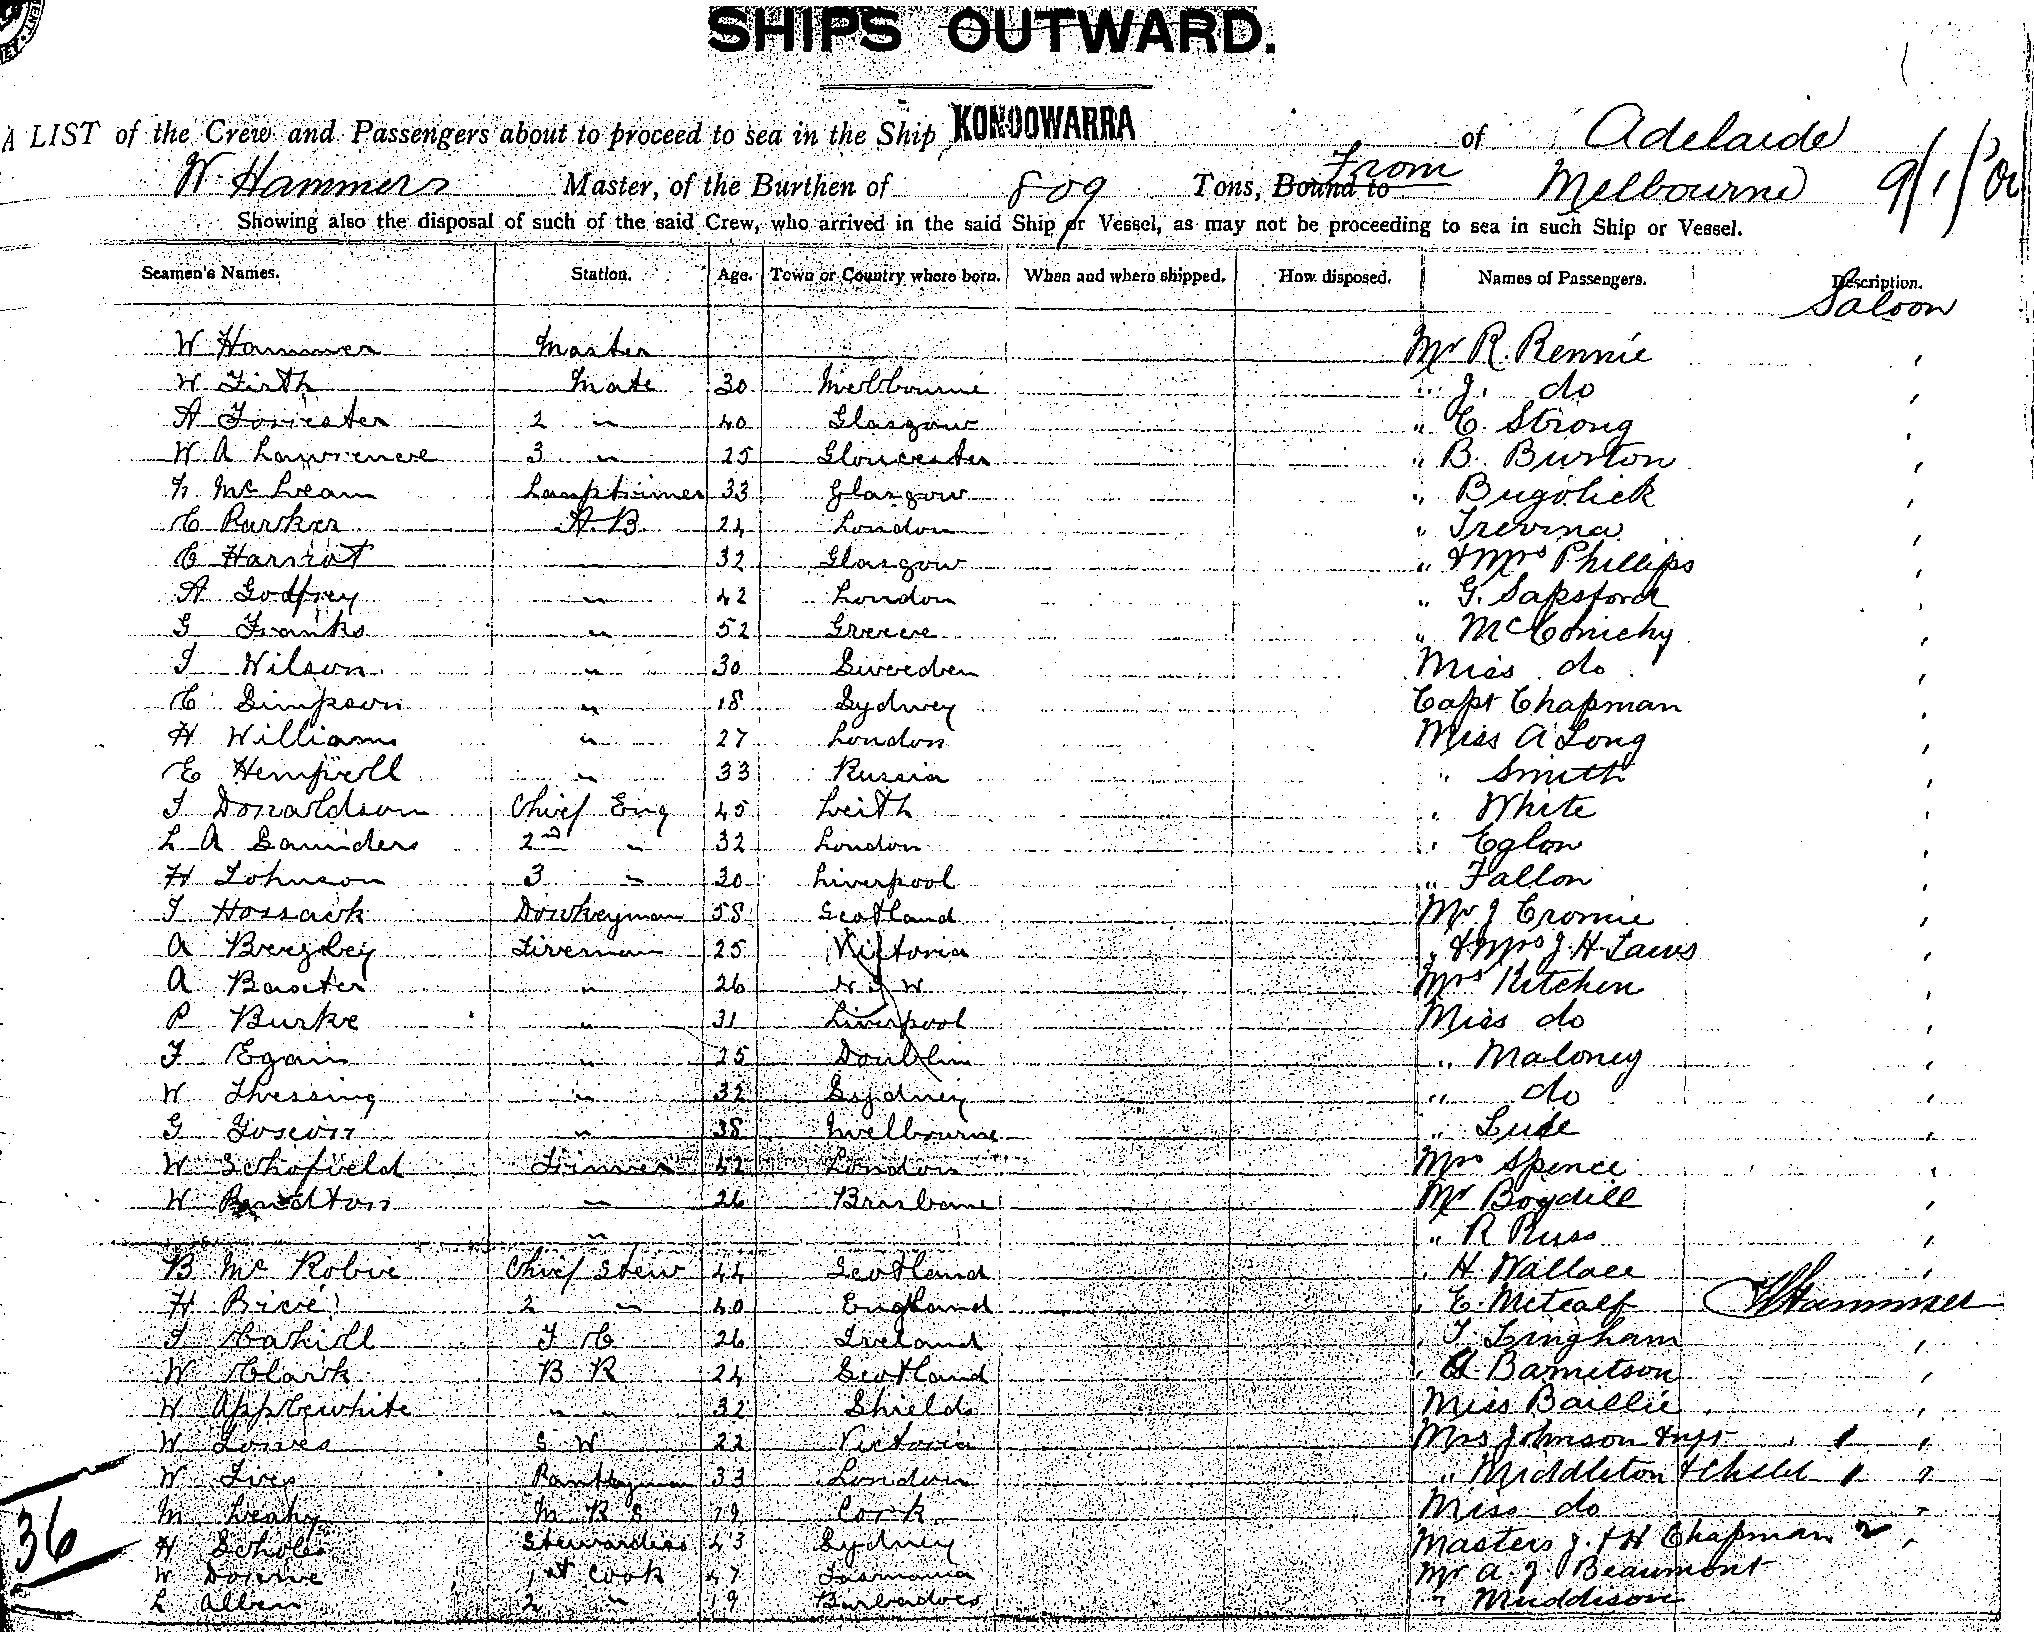 SHIPS OUTWARD.
A LIST of the Crew and Passengers about to proceed to sea in the Ship KONOOWARRA of Adelaide
W. Hammers Master, of the Burthen of 809 Tons, Bound to From Melbourne 9/1/02
Showing also the disposal of such of the said Crew, who arrived in the said Ship or Vessel, as may not be proceeding to sea in such Ship or Vessel.
Seamen's Names. Station. Age. Town or Country where born. When and where shipped. How disposed. Names of Passengers. Description.
Saloon
W Hammer Master Mr R. Rennie '
W Firth Mate 30 Melbourne " J. do '
A Forrester 2 " 40 Glasgow " C. Strong '
W A Lawrence 3 " 25 Gloucester " B. Burton '
Mc Lean Lamptrimer 33 Glasgow " '
C Parker A.B. 24 London " Trevina '
C Harriot " 32 Glasgow " & Mrs Phillips '
A Godfrey " 42 London " G. Sapsford '
G Franks " 52 Greece " McConichy '
J Wilson " 30 Sweeden Miss do '
C Simpson " 18 Sydney Capt Chapman '
H Williams " 27 London Miss A Long '
E " 33 Russia " Smith '
J Donaldson Chief Eng 45 Leith " White '
L A Saunders 2nd " 32 London " Eglon '
H Johnson 3 " 30 Liverpool " Fallon '
J Hossack Donkeyman 58 Scotland Mr J Cromie '
A Fireman 25 Victoria " & Mrs J. H. Laws '
A Baxter " 26 N S W Mrs Kitchen '
P Burke " 31 Liverpool Miss do '
J Egain " 25 Doublin " Maloney '
W " 32 Sydney " do '
G " 38 Melbourne " '
W Schofield Trimmer 42 London Mrs Spence '
W " 26 Brisbane Mr Bogdill '
" " R Russ '
B Mc Robie Chief Stew 44 Scotland " H Wallace '
H Brice 2 " 40 England " E. Metcalf W Hammer
J Cahill F C 26 Ireland " T. Lingham '
W Clark B R 24 Scotland " A Barnetson '
W Applewhite " " 32 Shields Miss Baillie '
W Jones S W 22 Victoria Mrs Johnson & inft 1 '
W Ives Pantryman 33 London " Middleton & Child 1 '
M Leahy M R S 19 Cork Miss do '
36
H Scholes Stewardess 43 Sydney Masters J. & H Chapman 2 '
W Downe 1st Cook 47 Tasmania Mr A. J Beaumont
L Allen 2 " 19 Barbadoes " Muddison